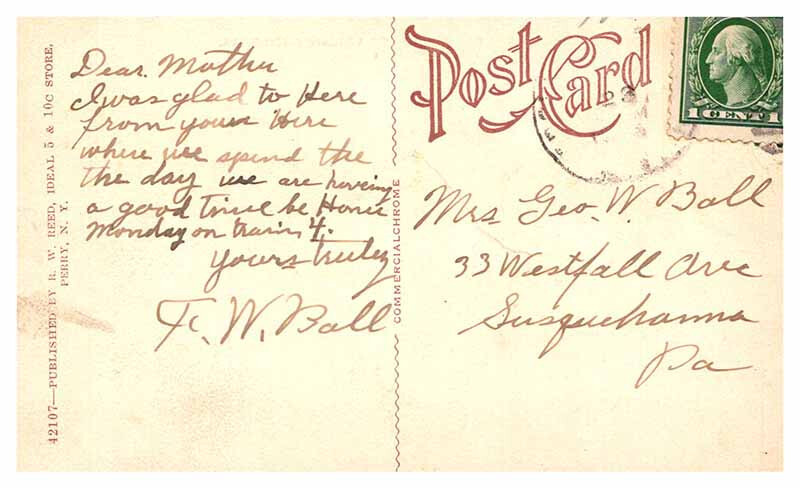 42107—PUBLISHED BY R. W. REED, IDEAL 5 & 10C STORE,
PERRY, N. Y.
Dear. Mother
I was glad to Here
from your Here
where we spend the
the day we are having
a good time be Home
Monday on train 4.
Yours truley
F. W. Ball
COMMERCIALCHROME
Post Card
1 CENT 1
Mrs Geo. W. Ball
33 Westfall Ave
Susquehanna
Pa